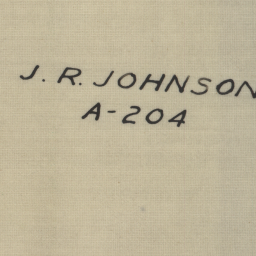 J. R. JOHNSON
A-204